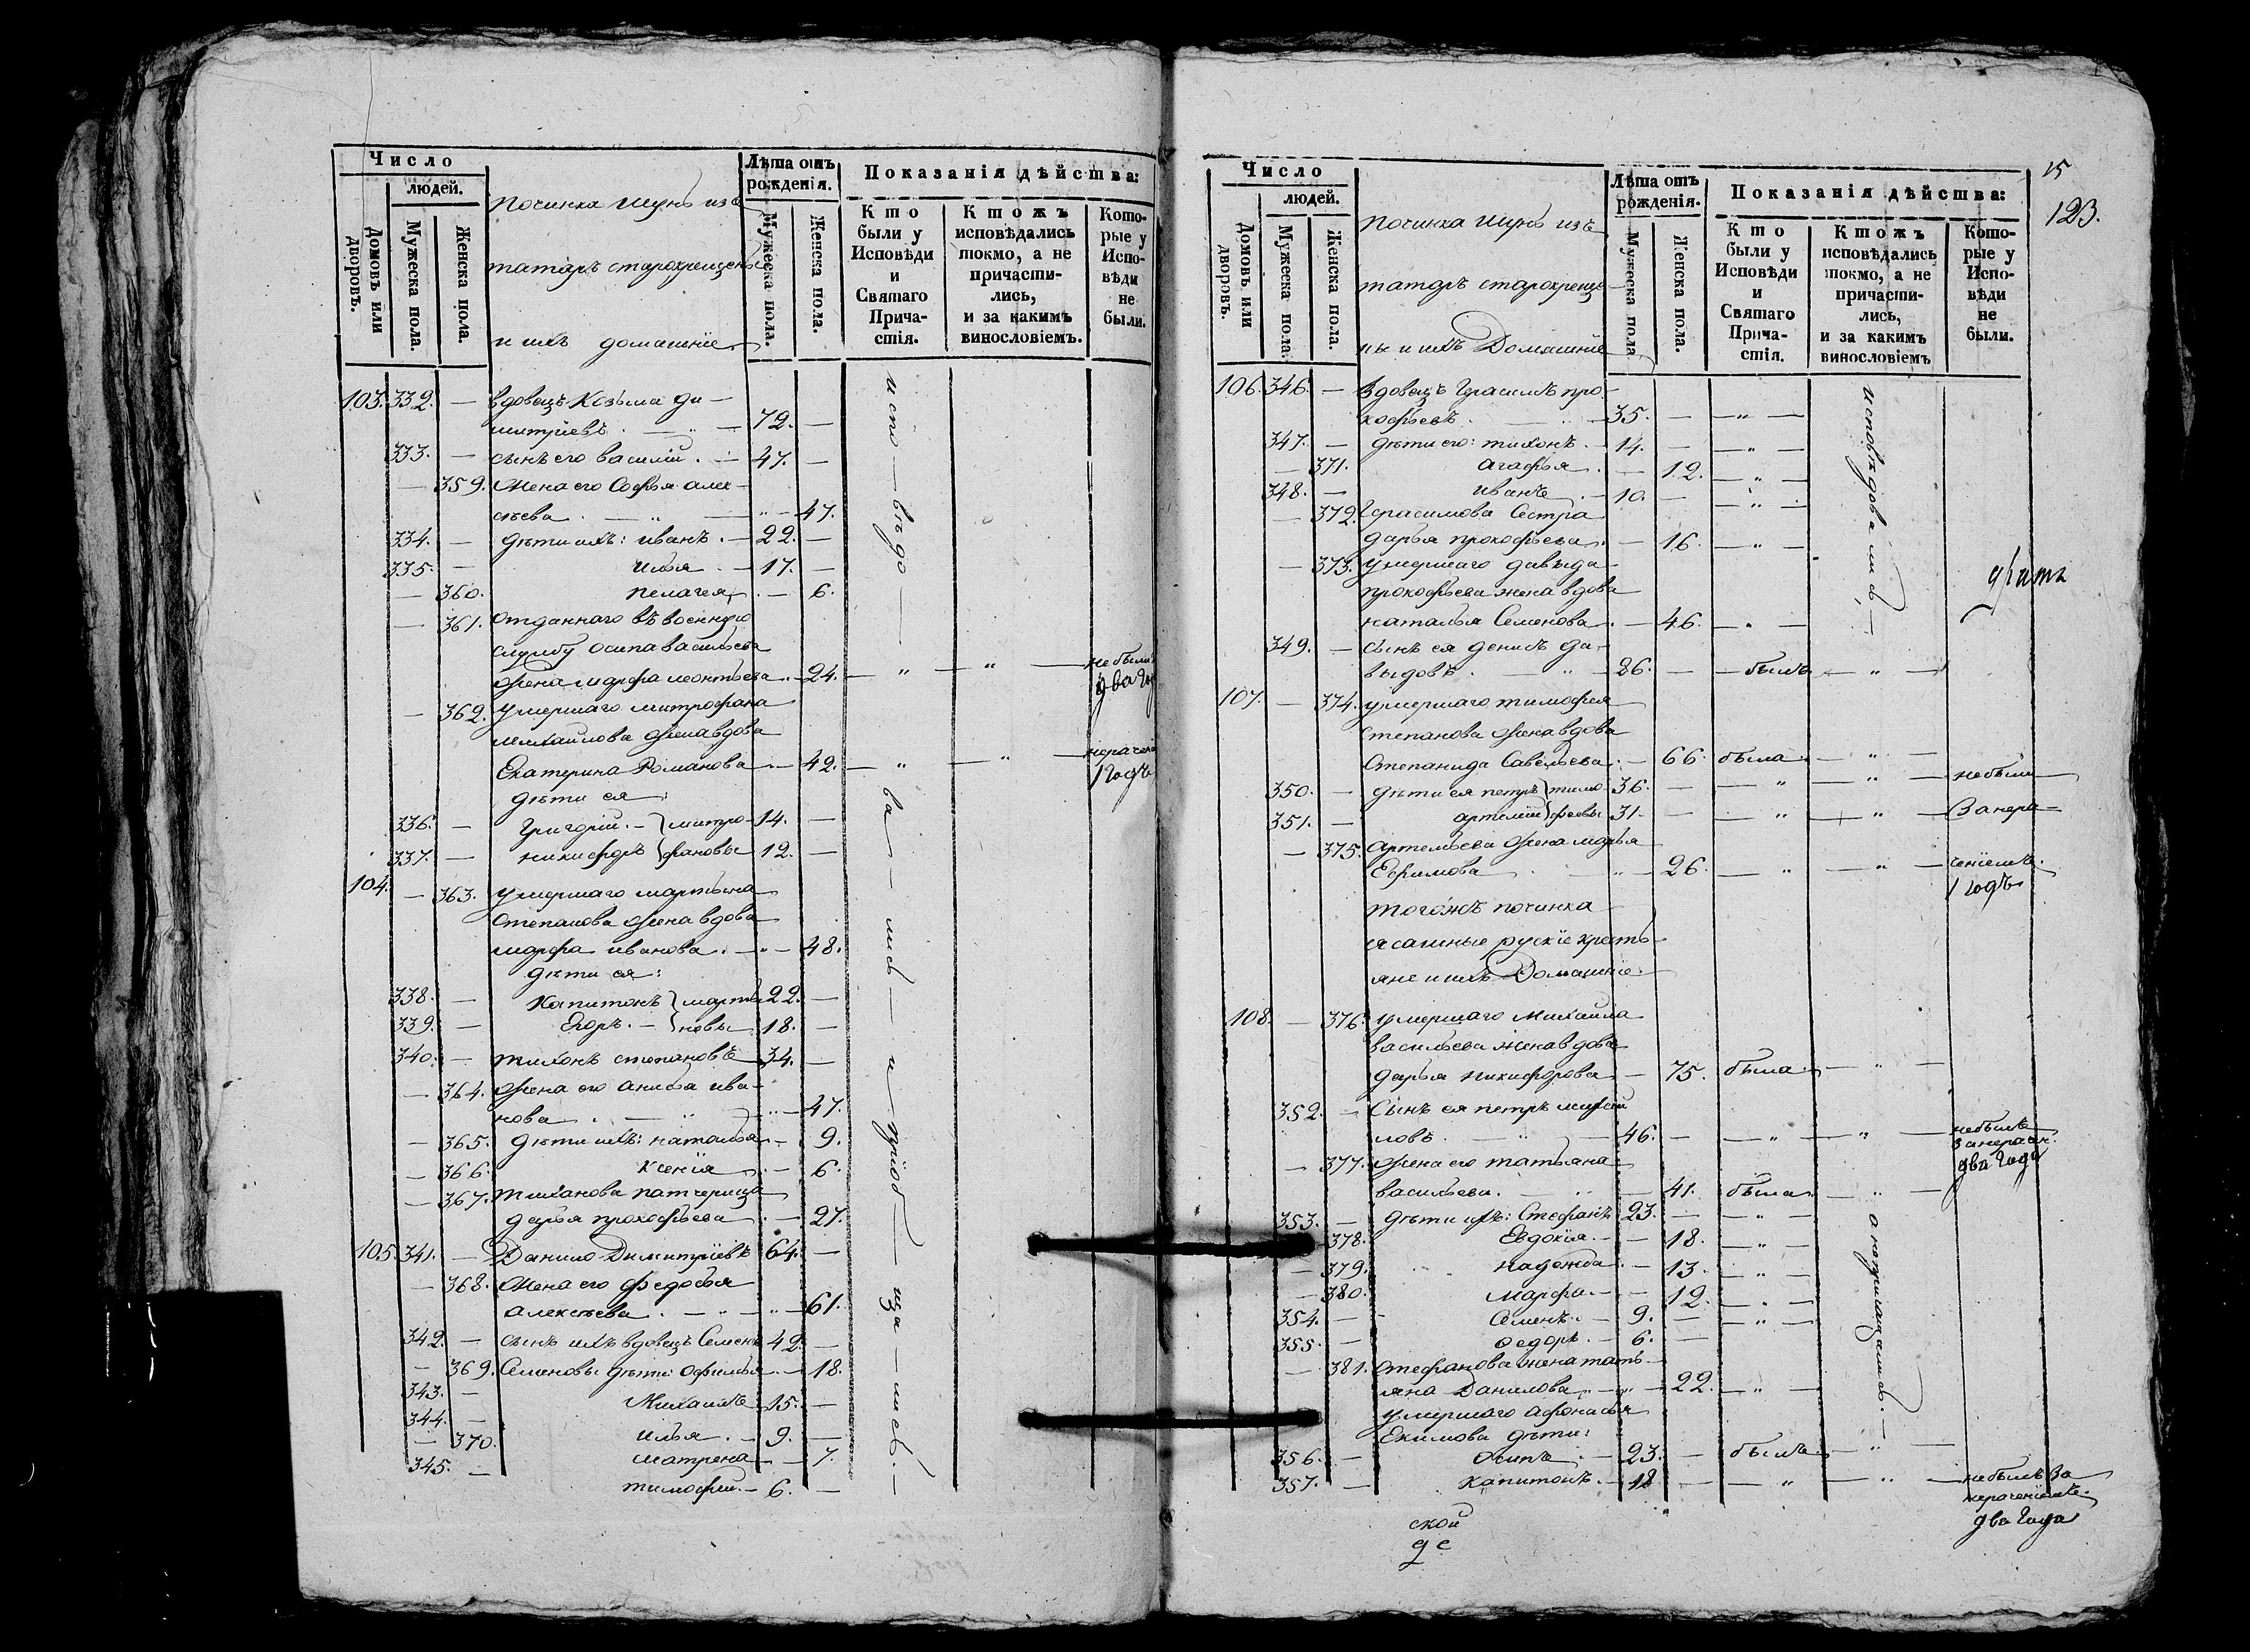 Число
людей.
Домовъ или дворовъ.
Мужеска пола.
Женска пола.
починка Шунь изъ
татаръ старокрещены
и ихъ домашніе
Лѣта отъ рожденія.
Мужеска пола.
Женска пола.
Показанія дѣйства:
Кто были у Исповѣди и Святаго Причастія.
Ктожъ исповѣдались токмо, а не причастились, и за какимъ винословіемъ.
Которые у Исповѣди не были.
103. 332. — вдовецъ Козьма Ди-
митріевъ. — „ — 72. —
333. — сынъ его василій. — 47. —
— 359. Жена его Софья алек-
сѣева. — „ — „ — 47.
334. — дѣти ихъ: иванъ. — 22. —
335. — илья. — 17. —
— 360. пелагея. — 6.
— 361. отданнаго въ военную
службу осипа васильева
жена марфа леонтьева. — 24. — „ — „ — не были
два год
— 362. умершаго митрофана
михаилова жена вдова
Екатерина Романова — 42. — „ — „ — нерачені
1 годъ
дѣти ея:
336. — Григорій. — } митро- 14. —
337. — никифоръ } фановы 12. —
104. — 363. умершаго мартына
степанова жена вдова
марфа иванова. — „ — 48.
дѣти ея:
338. — Капитонъ } марты- 22. —
339. — Егоръ. — } новы 18. —
340. — тихонъ степановъ 34. —
— 364. жена его анисья ива-
нова. — „ — „ — 47.
— 365. дѣти ихъ: наталья — 9.
— 366. ксенія — 6.
— 367. тиханова патчерица
дарья прокофьева. — 27.
105. 341. — Данило Димитріевъ 64. —
— 368. Жена его федосья
алексѣева. — „ — „ — 61.
342. — сынъ ихъ вдовецъ Семенъ 42. —
— 369. Семеновы дѣти: офимья. — 18.
343. — Михаилъ 15. —
344. — илья. — 9. —
— 370. матрена — 7.
345. — тимофей. — 6. —
испо — вѣдо — ва — лись — и — пріоб — ща — лись. —
15
123.
Число
людей.
Домовъ или дворовъ.
Мужеска пола.
Женска пола.
починка Шунь изъ
татаръ старокрещe-
ны и ихъ Домашніе
Лѣта отъ рожденія.
Мужеска пола
Женска пола.
Показанія дѣйства:
Кто были у Исповѣди и Святаго Причастія.
Ктожъ исповѣдались токмо, а не причастились, и за какимъ винословіемъ
Которые у Исповѣди не были.
106. 346. — вдовецъ Герасимъ про-
кофьевъ. — „ — 35. — — „ —
347. — дѣти его: тихонъ. — 14. — — „ —
— 371. агафья. — 12. — „ —
348. — иванъ. — 10. — — „ —
— 372. Герасимова Сестра
дарья прокофьева. — 16. — „ —
— 373. умершаго давыда
прокофьева жена вдова
наталья Семенова. — 46. — „ —
349. — сынъ ея денисъ да-
выдовъ. — „ — 26. — — былъ — „ —
107. — 374. умершаго тимофея
степанова жена вдова
Степанида Савельева. — 66. была — „ —
350. — дѣти ея петръ } тимо- 36. — „ — „ — не были
351. — артемій } феевы 31. — „ — „ — За нера-
— 375. артемьева жена марья
Ефимова. — „ — 26. — „ — „ — ченіемъ.
1 годъ
тогожъ починка
ясашные рускіе кресть-
яне и ихъ Домашніе:
108. — 376. умершаго михаила
васильева жена вдова
дарья никифорова — 75. была. — „ —
352. — Сынъ ея петръ михай-
ловъ. — „ — 46. — — „ — „ — небылъ
за нерачен.
два года
— 377. жена его татьяна
васильева. — „ — 41. была — „ —
353. — дѣти ихъ: Стефанъ 23. — — „ —
378. Евдокія. — — 18. — „ —
— 379. надежда. — 13. — „ —
— 380. марфа. — — 12. — „ —
354. — Семенъ. — 9. — — „ —
355. — Федоръ. — 6. —
— 381. Стефанова жена тать-
яна Данилова. — „ — 22. — „ —
умершаго афонасья
Екимова дѣти:
356. — Осипъ. — 23. — былъ. — „ —
357. — Капитонъ. — 18 — — „ — „ — небылъ за
нераченіемъ.
два года
исповѣдовались, —